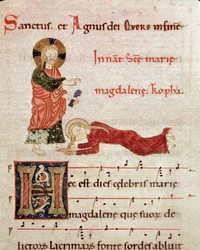 Sanctus. et Agnus dei Quere in fine
In nat̄ Sc̄e marie
magdalene: ℞opha.
Hec est dies celebris marie
magdalene que suor de
lictors lacrimas fonte sordes abluit